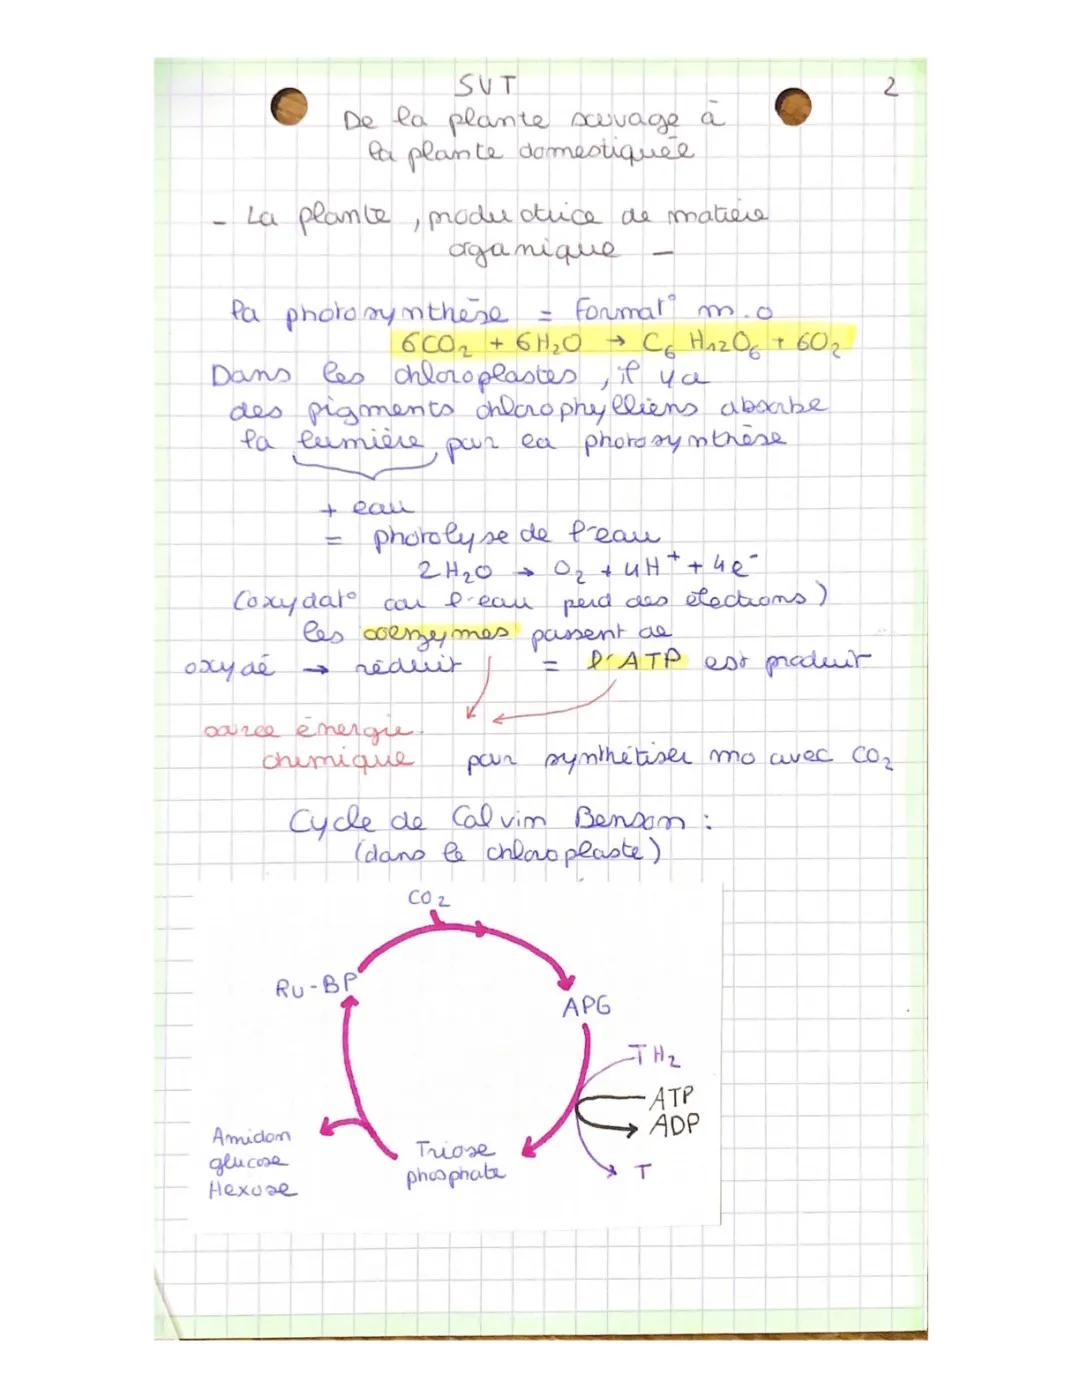 SVT
2
De la plante sauvage à
la plante domestiquée
- La plante, productrice de matière
organique -
la photosynthèse = Format° m.o
6CO₂ + 6H₂O → C₆H₁₂O₆ + 6O₂
Dans les chloroplastes, il y a
des pigments chlorophylliens absorbe
la lumière pour la photosynthèse
+ eau
= photolyse de l'eau
2H₂O → O₂ + 4H⁺ + 4e⁻
(oxydat° car l'eau perd des électrons)
les coenzymes passent de
oxydé → réduit = l'ATP est produit
énergie
chimique pour synthétiser mo avec CO₂
Cycle de Calvin Benson :
(dans le chloroplaste)
CO₂
Ru-BP
APG
TH₂
ATP
ADP
T
Triose
phosphate
Amidon
glucose
Hexose